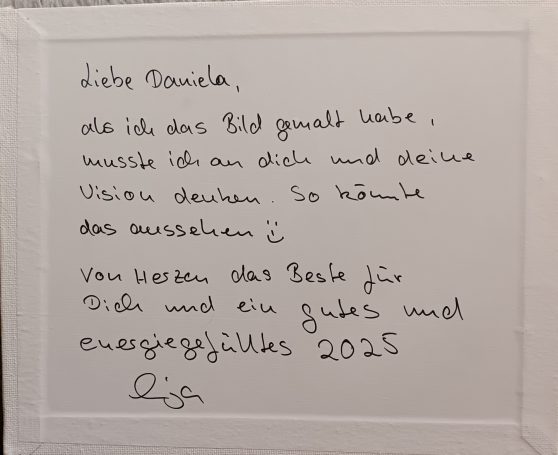 Liebe Daniela,
als ich das Bild gemalt habe,
musste ich an dich und deine
Vision denken. So könnte
das aussehen :)
Von Herzen das Beste für
Dich und ein gutes und
energiegefülltes 2025